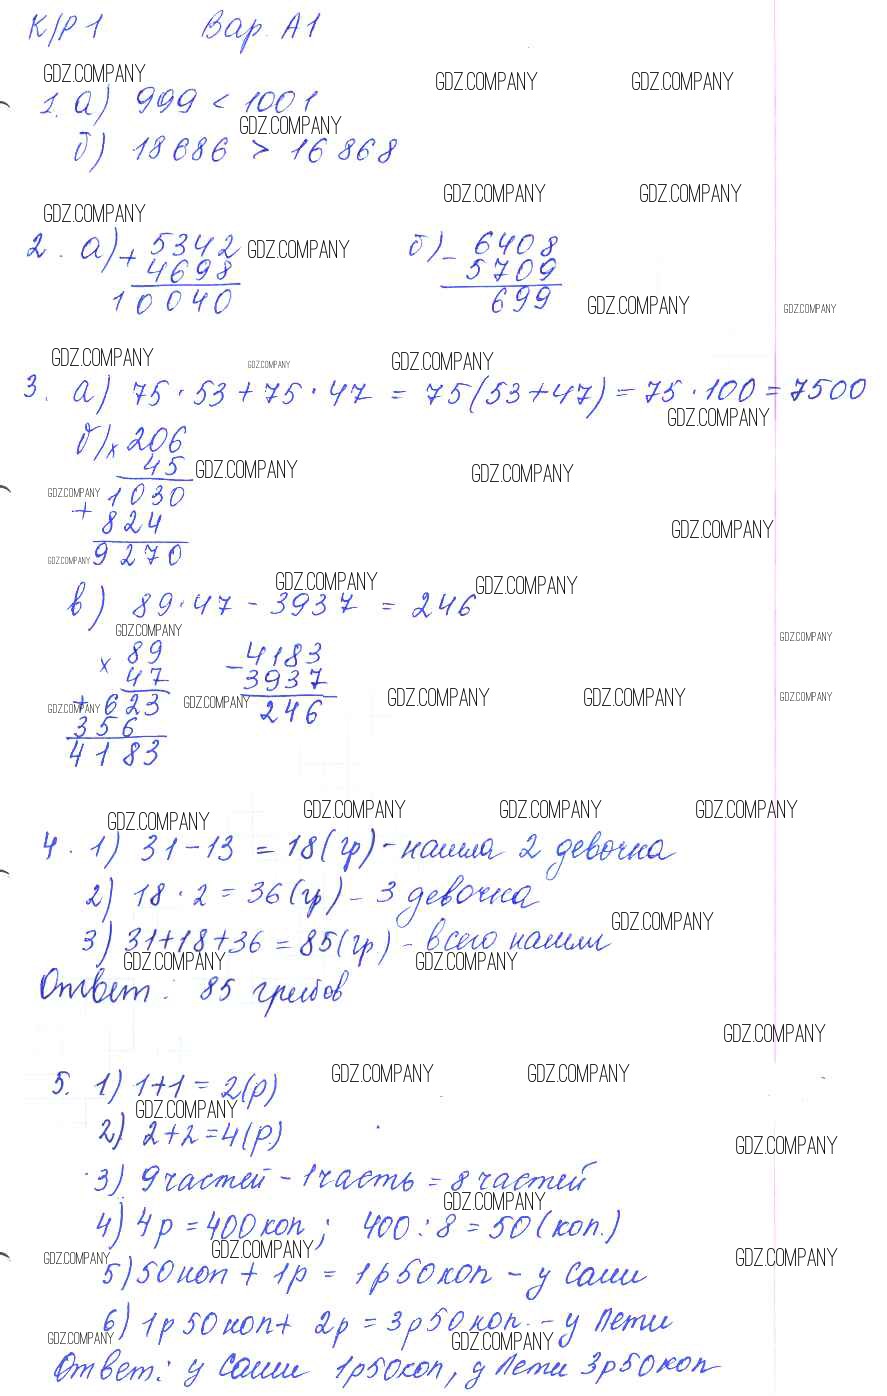 К/Р 1 Вар. А1
GDZ.COMPANY
GDZ.COMPANY GDZ.COMPANY
1. а) 999 < 1001
GDZ.COMPANY
б) 18686 > 16868
GDZ.COMPANY GDZ.COMPANY
GDZ.COMPANY
2. а) + 5342 GDZ.COMPANY б) - 6408
4698 5709
10040 699 GDZ.COMPANY GDZ.COMPANY
GDZ.COMPANY GDZ.COMPANY GDZ.COMPANY
3. а) 75 · 53 + 75 · 47 = 75(53+47) = 75 · 100 = 7500
GDZ.COMPANY
б) x 206
45 GDZ.COMPANY GDZ.COMPANY
GDZ.COMPANY 1030
+ 824 GDZ.COMPANY
GDZ.COMPANY 9270
GDZ.COMPANY GDZ.COMPANY
в) 89 · 47 - 3937 = 246
GDZ.COMPANY GDZ.COMPANY
x 89 - 4183
47 3937
GDZ.COMPANY + 623 GDZ.COMPANY 246 GDZ.COMPANY GDZ.COMPANY GDZ.COMPANY
356
4183
GDZ.COMPANY GDZ.COMPANY GDZ.COMPANY GDZ.COMPANY
4. 1) 31 - 13 = 18(гр) - нашла 2 девочка
2) 18 · 2 = 36(гр) - 3 девочка
GDZ.COMPANY
3) 31+18+36 = 85(гр) - всего нашли
GDZ.COMPANY GDZ.COMPANY
Ответ: 85 грибов
GDZ.COMPANY
GDZ.COMPANY GDZ.COMPANY
5. 1) 1+1 = 2(р)
GDZ.COMPANY
2) 2+2=4(р.)
GDZ.COMPANY
3) 9 частей - 1 часть = 8 частей
GDZ.COMPANY
4) 4р = 400 коп; 400 : 8 = 50 (коп.)
GDZ.COMPANY
GDZ.COMPANY GDZ.COMPANY
5) 50 коп + 1р = 1р 50 коп - у Саши
6) 1р 50 коп + 2р = 3р 50 коп. - у Пети
GDZ.COMPANY GDZ.COMPANY
Ответ: у Саши 1р50коп, у Пети 3р50коп